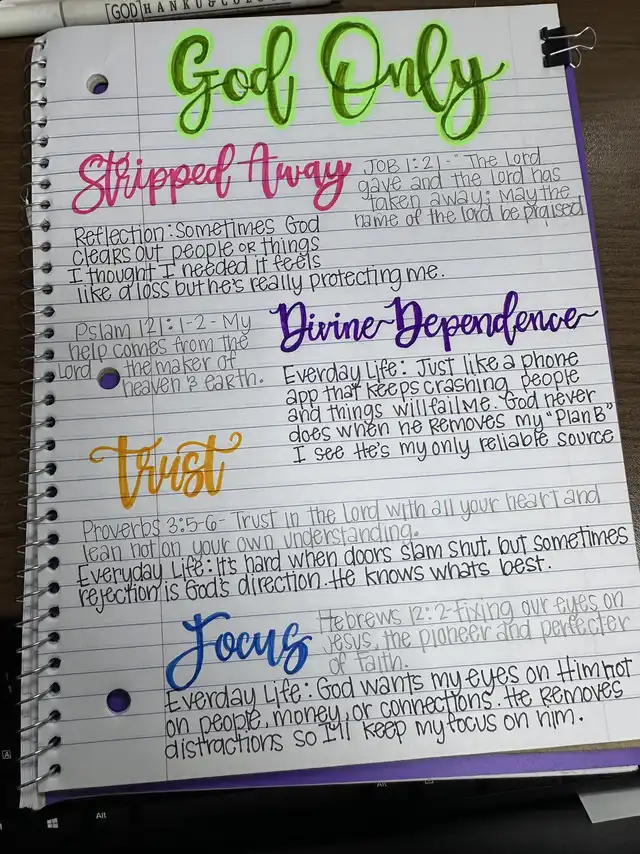 [GOD] HANKU&
God Only
Stripped Away
JOB 1:21 - "The Lord
gave and the Lord has
taken away; May the
name of the lord be praised
Reflection: Sometimes God
clears out people or things
I thought I needed it feels
like a loss but he's really protecting me.
Pslam 121:1-2 - My
help comes from the
Lord the maker of
heaven & earth.
Divine Dependence
Everday Life: Just like a phone
app that keeps crashing people
and things will fail me. God never
does when he removes my "Plan B"
I see He's my only reliable source
Trust
Proverbs 3:5-6 - Trust in the Lord with all your heart and
lean not on your own understanding.
Everyday Life: It's hard when doors slam shut, but sometimes
rejection is God's direction. He knows whats best.
Focus
Hebrews 12:2 - fixing our eyes on
Jesus, the pioneer and perfecter
of faith.
Everday Life: God wants my eyes on Him not
on people, money, or connections. He removes
distractions so I'll keep my focus on him.
A
Alt
Alt